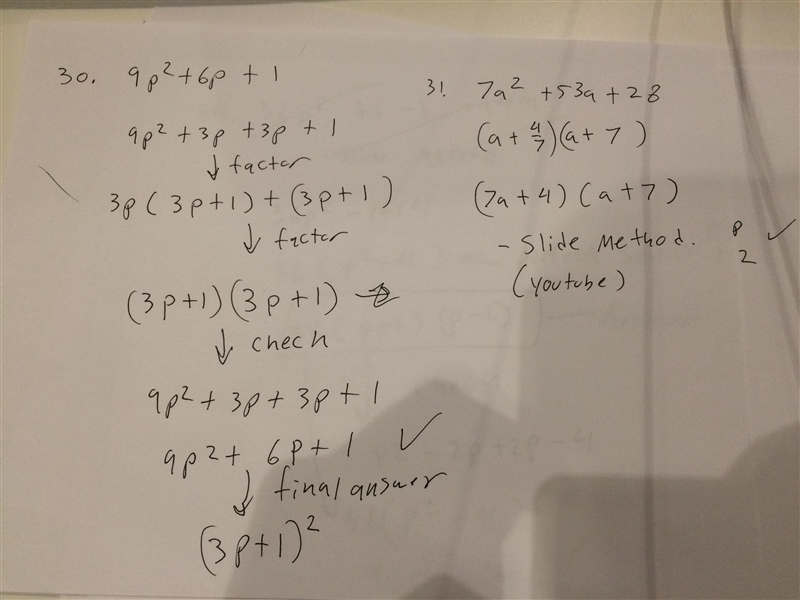 30. 9p² + 6p + 1
9p² + 3p + 3p + 1
↓ factor
3p ( 3p+1) + (3p+1)
↓ factor
(3p+1)(3p+1) →
↓ check
9p² + 3p + 3p + 1
9p² + 6p + 1 ✓
↓ final answer
(3p+1)²
31. 7a² + 53a + 28
(a + 4/7)(a + 7)
(7a+4) (a+7)
- Slide Method.
(Youtube)
p ✓
2